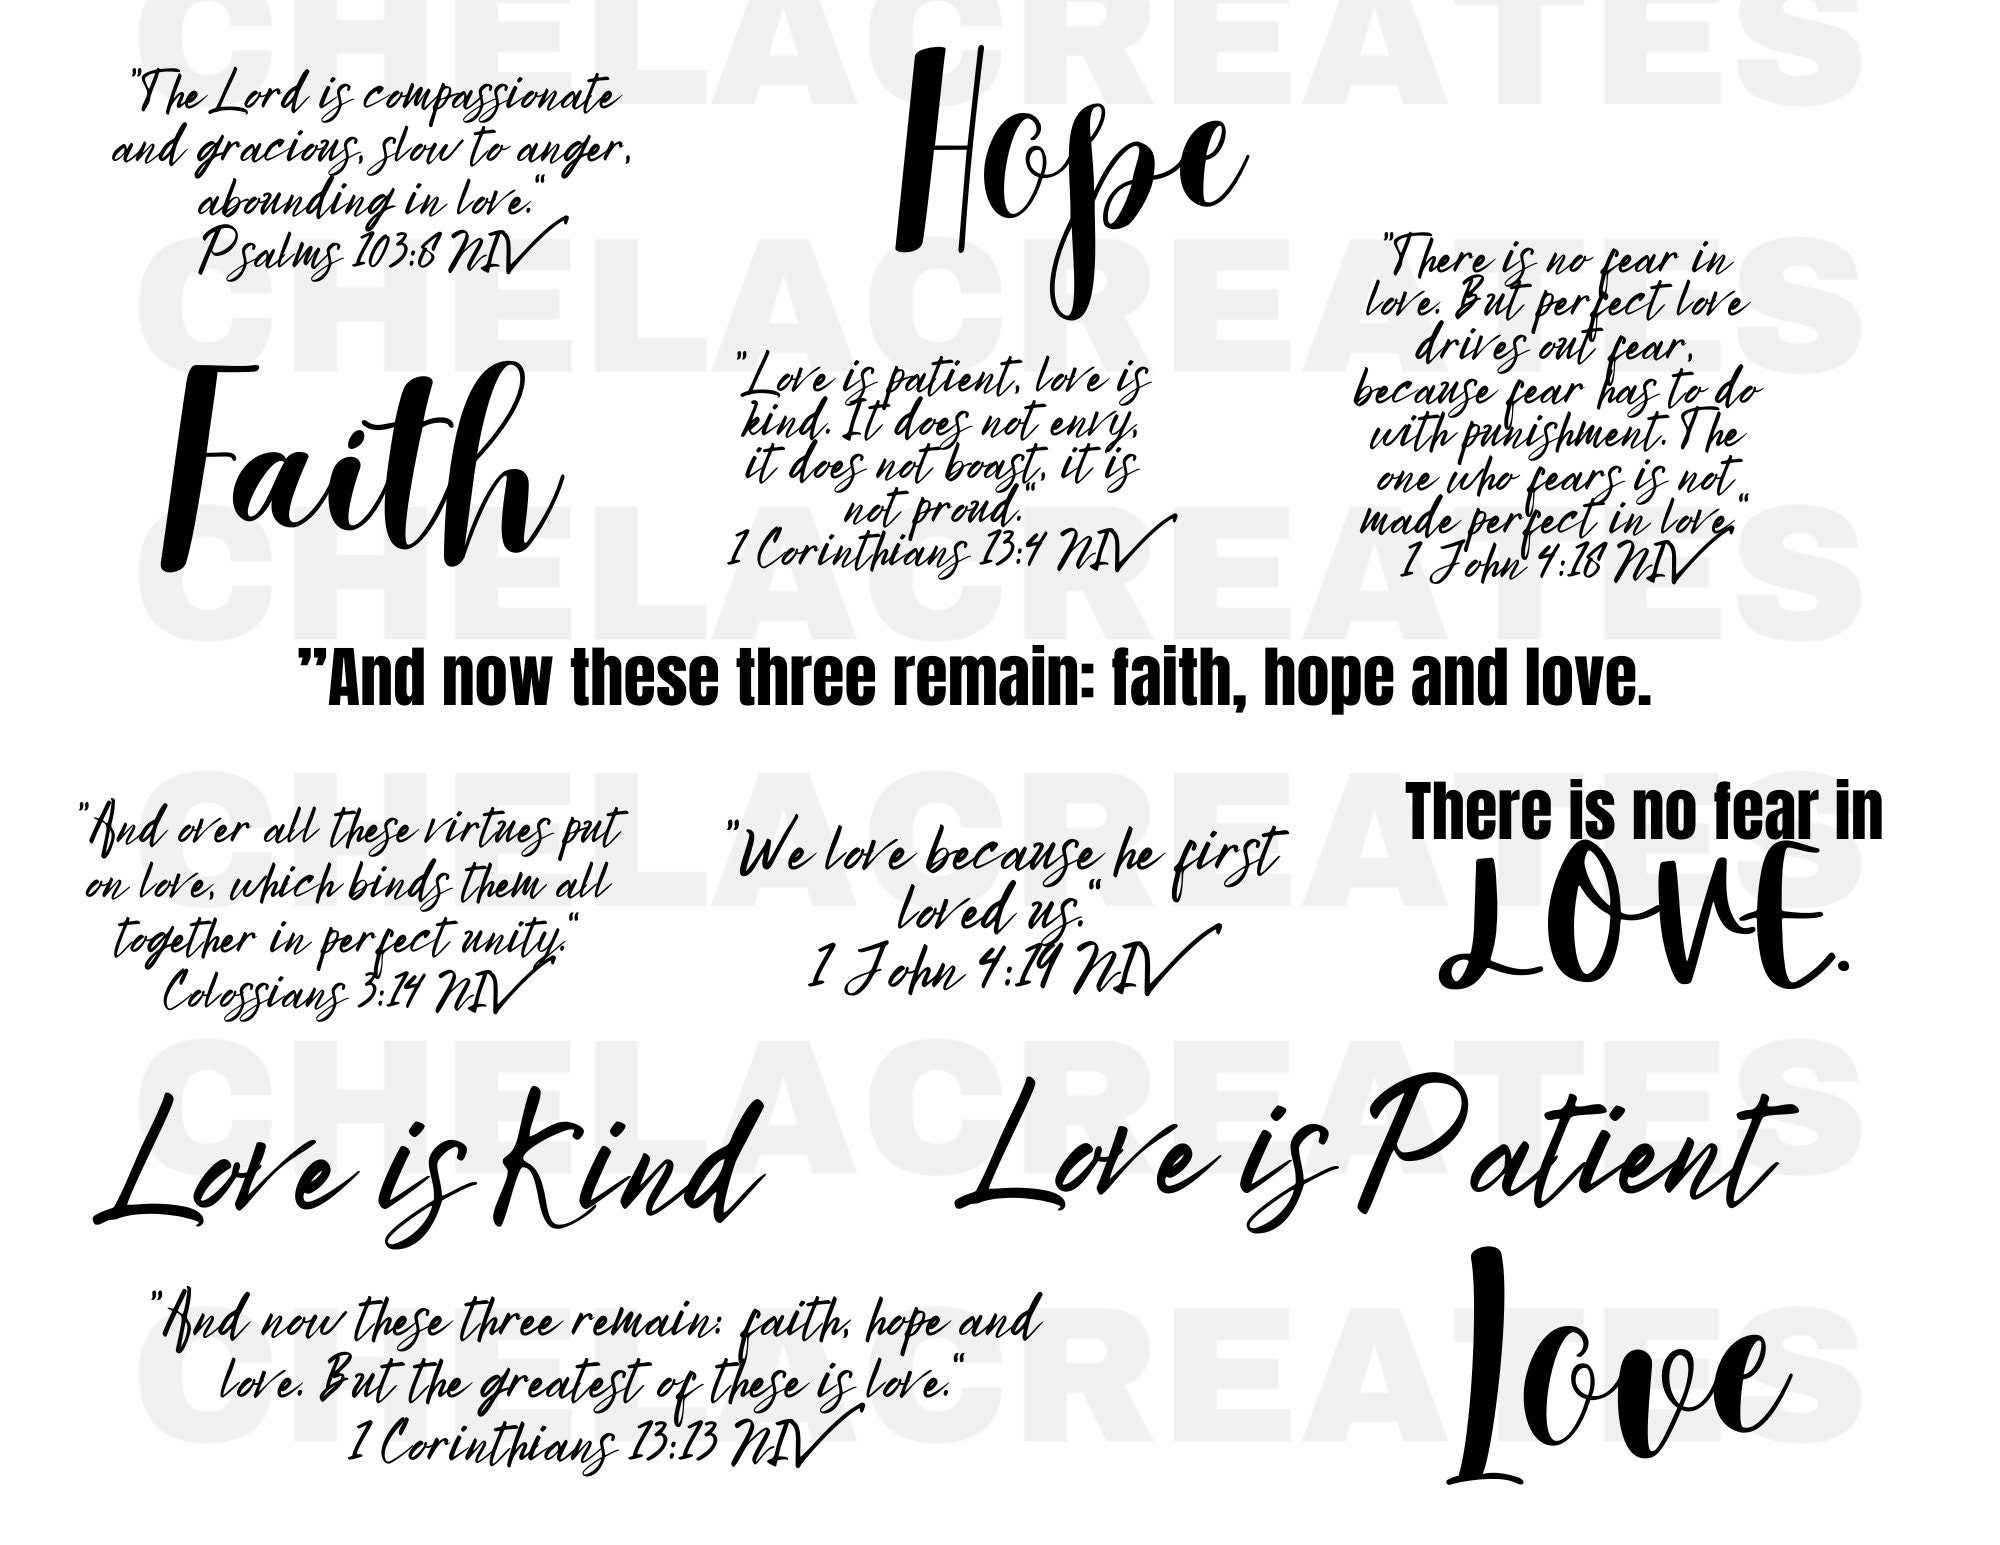 CHELACREATES
"The Lord is compassionate
and gracious, slow to anger,
abounding in love."
Psalms 103:8 NIV
Hope
CHELACREATES
Faith
"Love is patient, love is
kind. It does not envy,
it does not boast, it is
not proud."
1 Corinthians 13:4 NIV
"There is no fear in
love. But perfect love
drives out fear,
because fear has to do
with punishment. The
one who fears is not
made perfect in love."
1 John 4:18 NIV
CHELACREATES
"And now these three remain: faith, hope and love.
CHELACREATES
"And over all these virtues put
on love, which binds them all
together in perfect unity."
Colossians 3:14 NIV
"We love because he first
loved us."
1 John 4:19 NIV
There is no fear in
LOVE.
CHELACREATES
Love is Kind
Love is Patient
CHELACREATES
"And now these three remain: faith, hope and
love. But the greatest of these is love."
1 Corinthians 13:13 NIV
Love